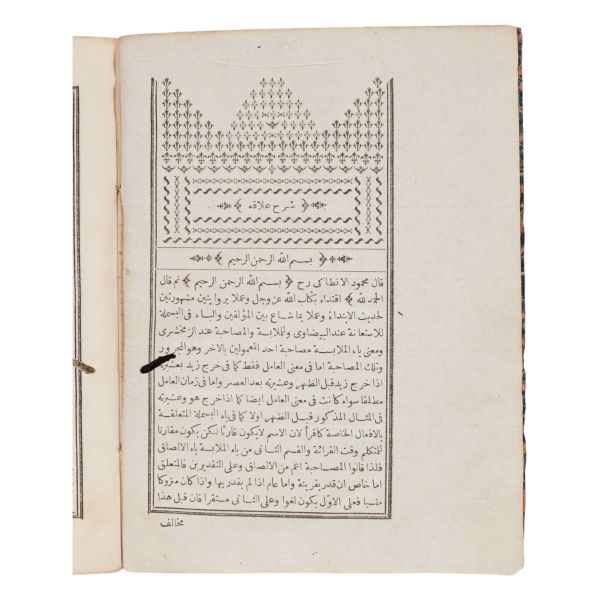 شرح علاقه
بسم الله الرحمن الرحيم
قال محمود الانطاكى رح ﴿ بسم الله الرحمن الرحيم ﴾ ثم قال
الحمد لله ﴾ اقتداء بكتاب الله عز وجل وعملا بروايتين مشهورتين
لحديث الابتداء وعملا بما شاع بين المؤلفين والباء فى البسملة
للاستعانة عند البيضاوى وللملابسة والمصاحبة عند الزمخشرى
ومعنى باء الملابسة مصاحبة احد المعمولين بالاخر وهو المجرور
وتلك المصاحبة اما فى معنى العامل فقط كما فى خرج زيد بعشيرته
اذا خرج زيد قبل الظهر وعشيرته بعد العصر واما فى زمان العامل
مطلقا سواء كانت فى معنى العامل ايضا كما اذا خرج هو وعشيرته
فى المثال المذكور قبل الظهر اولا كما فى باء البسملة المتعلقة
بالافعال الخاصة كاقرأ لان الاسم لايكون قارئا لكن يكون مقارنا
للمتكلم وقت القرائة والقسم الثانى من باء الملابسة باء الالصاق
فلذا قالوا المصاحبة اعم من الالصاق وعلى التقديرين فالمتعلق
اما خاص ان قدر بقرينة واما عام اذا لم يقدر بها واذا كان متروكا
منسيا فعلى الاول يكون لغوا وعلى الثانى مستقرا فان قيل هذا
مخالف